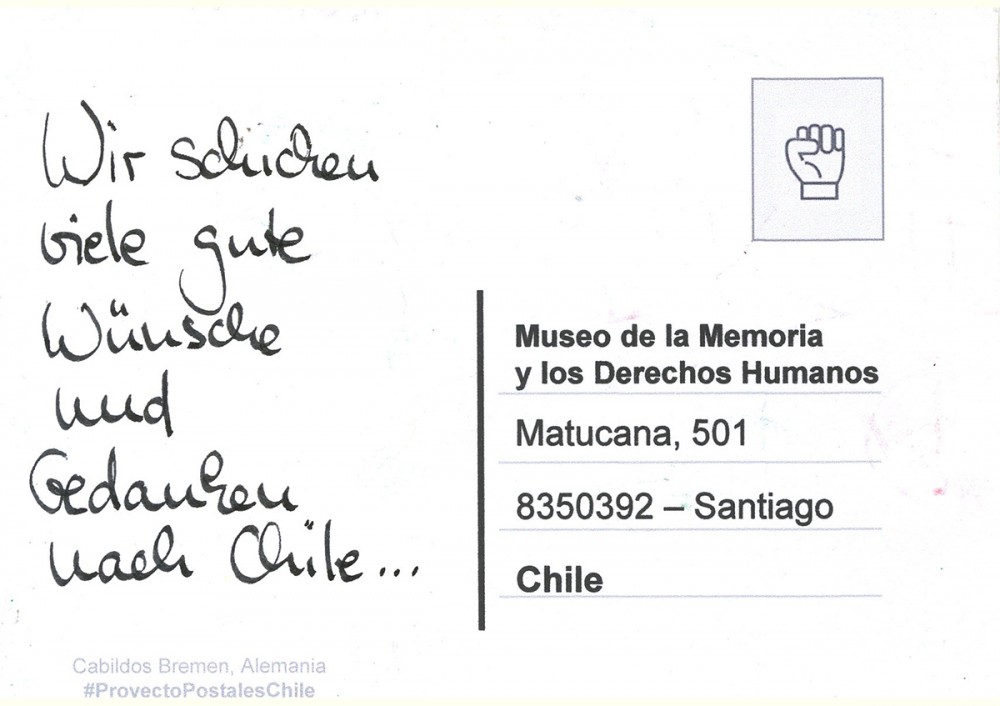 Wir schicken
viele gute
Wünsche
und
Gedanken
nach Chile...
Museo de la Memoria
y los Derechos Humanos
Matucana, 501
8350392 – Santiago
Chile
Cabildos Bremen, Alemania
#ProyectoPostalesChile